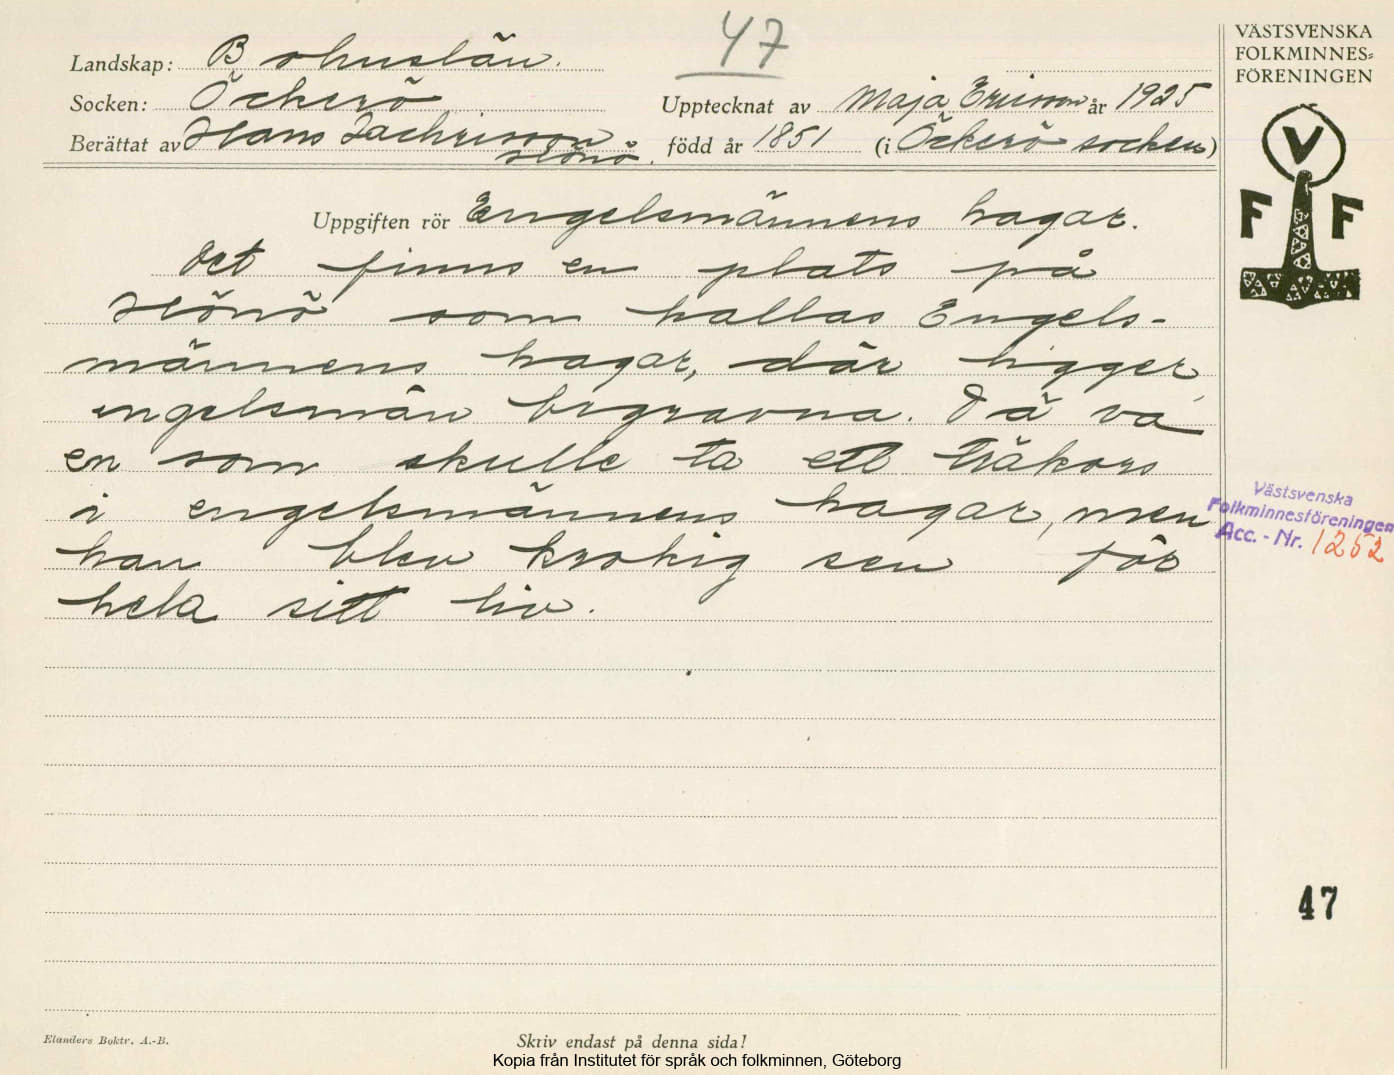 47
VÄSTSVENSKA
FOLKMINNES=
FÖRENINGEN
Landskap: Bohuslän.
Socken: Öckerö
Upptecknat av Maja Ericson år 1925
Berättat av Hans Zachrisson
Hönö. född år 1851 (i Öckerö socken)
V
F F
Uppgiften rör Engelsmännens hagar.
Det finns en plats på
Hönö som kallas Engels-
männens hagar, där ligger
engelsmän begravna. Dä va
en som skulle ta ett träkors
i engelsmännens hagar, men
han blev krokig sen för
hela sitt liv.
Västsvenska
Folkminnesföreningen
Acc. - Nr. 1252
47
Elanders Boktr. A.-B.
Skriv endast på denna sida!
Kopia från Institutet för språk och folkminnen, Göteborg